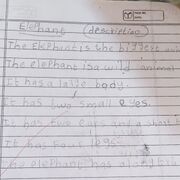 Elephant (description)
The Elephant is the biggest
The elephant is a wild animal
It has a large body.
It has two small eyes.
It has two ears and a
It has four legs.
The elephant has a